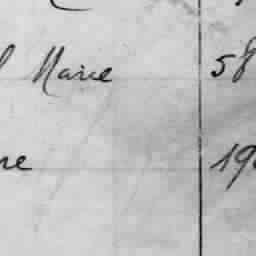 Marie 58
ne 19